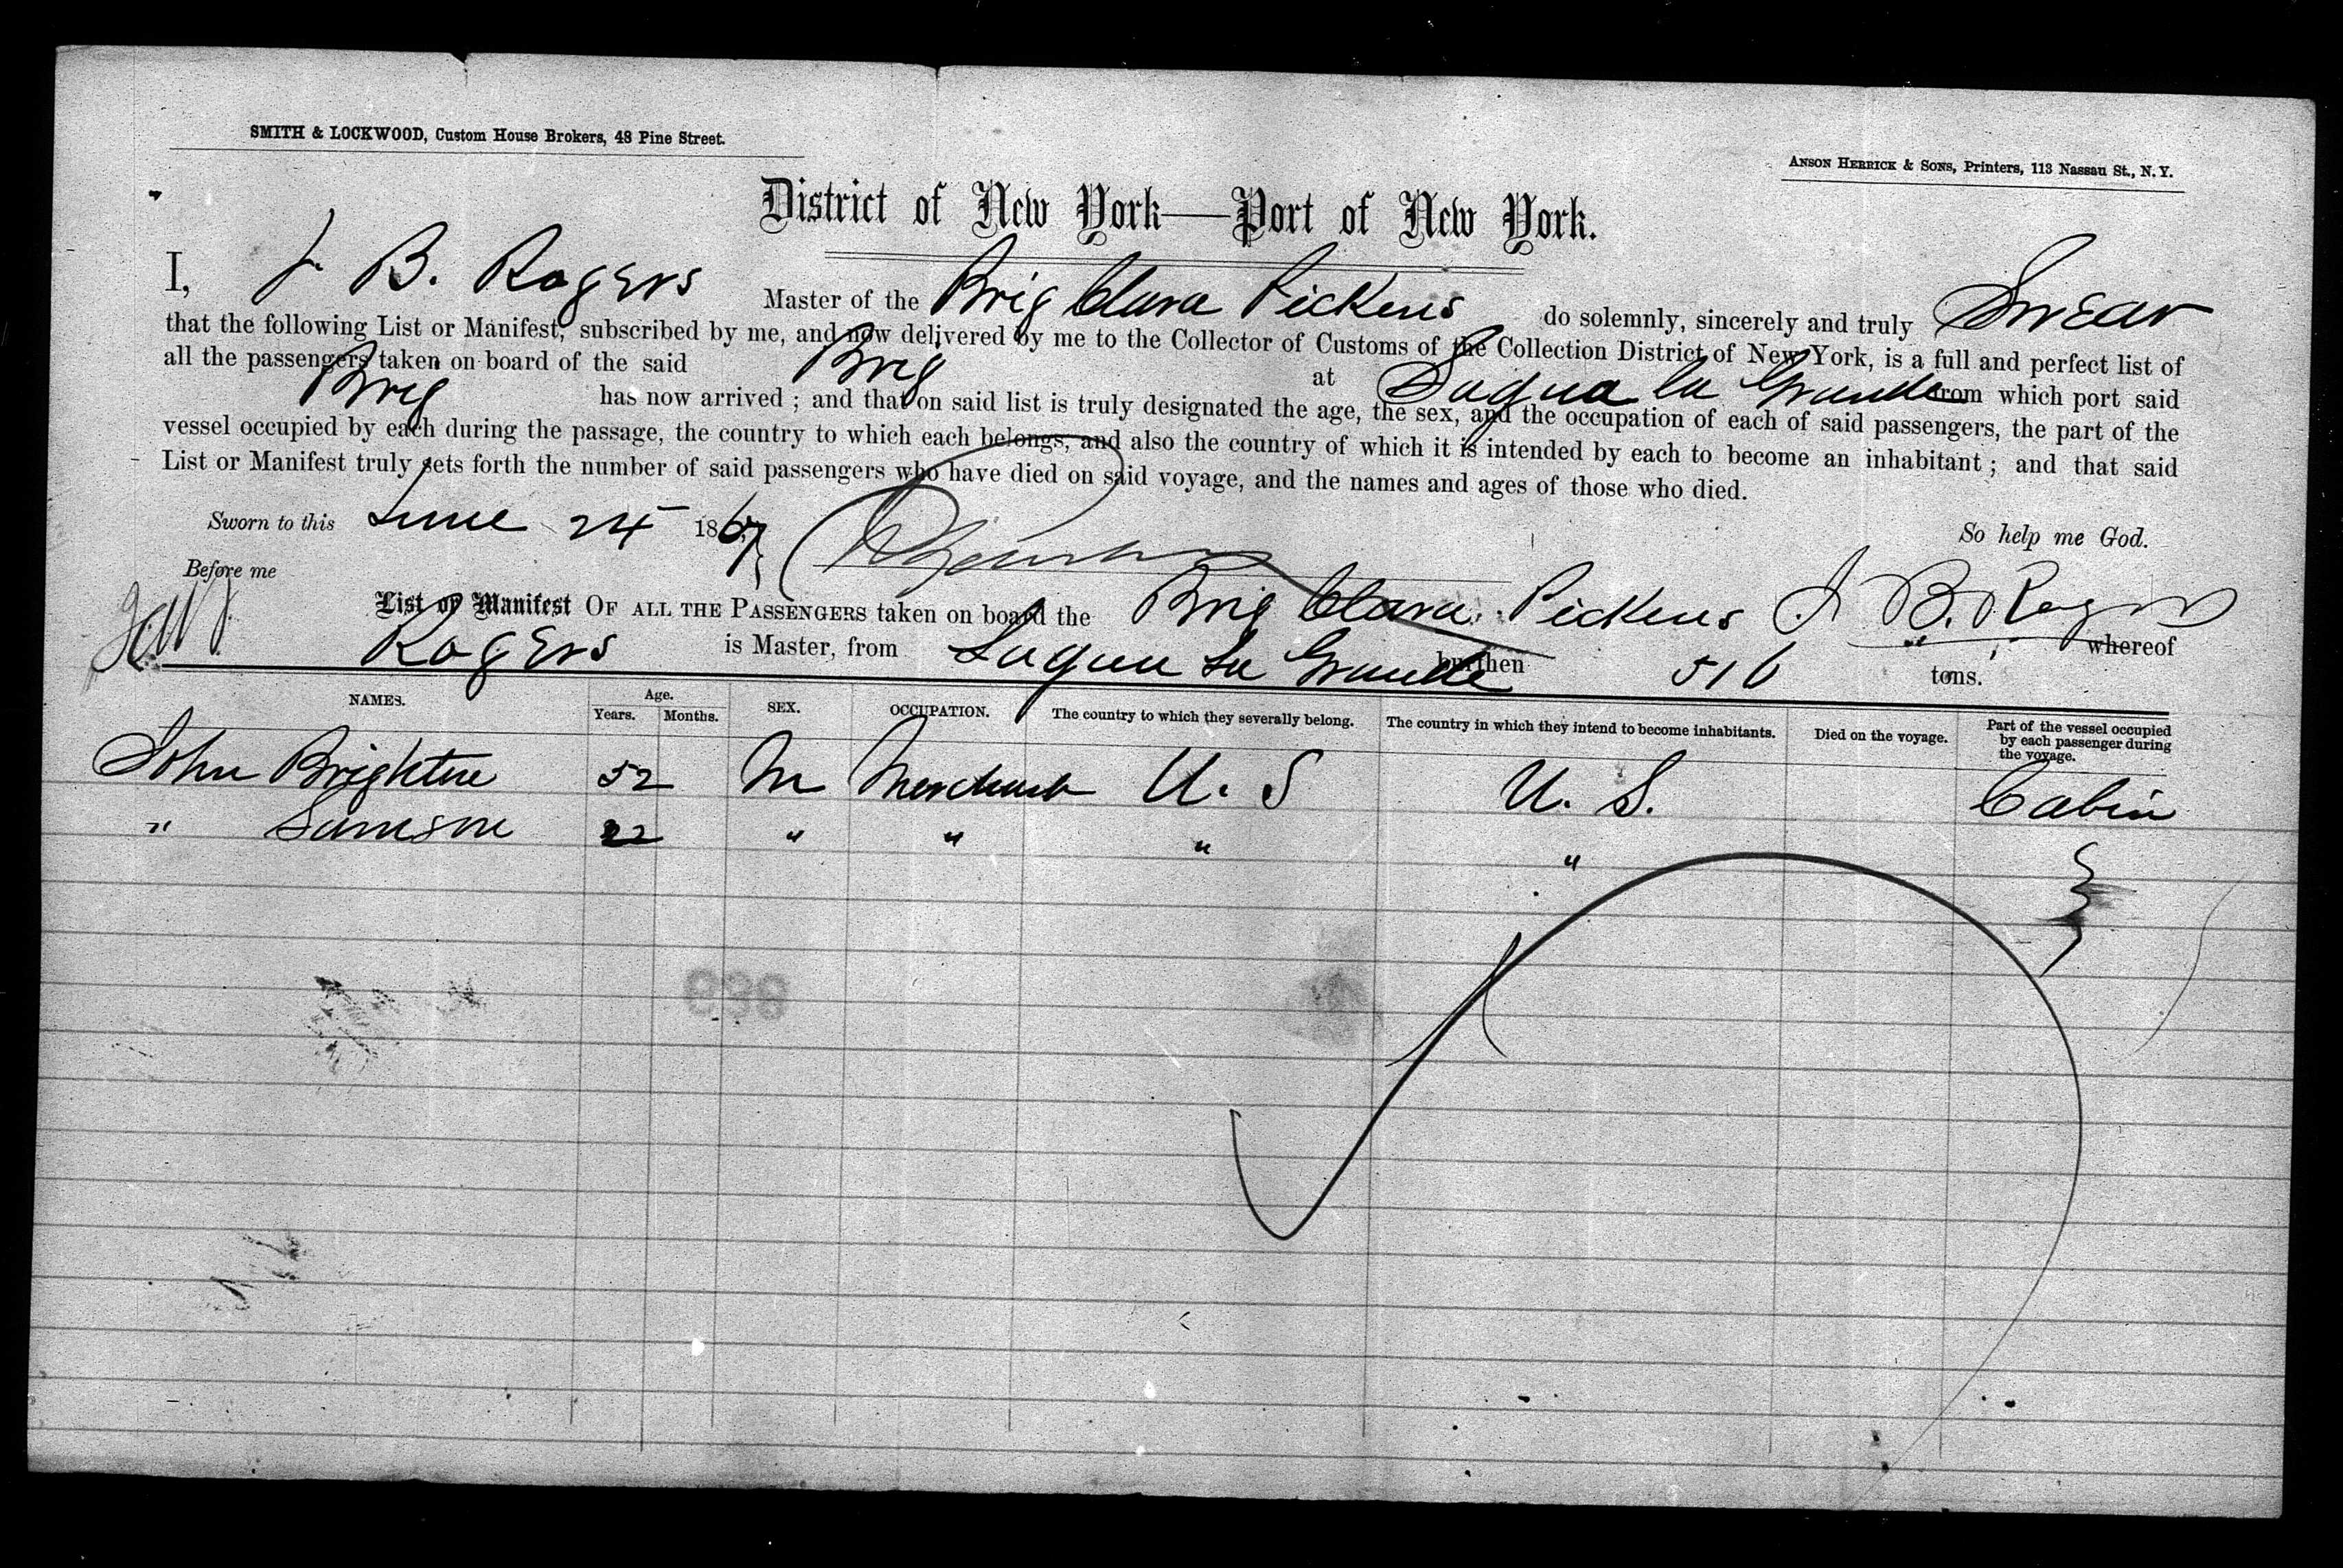 SMITH & LOCKWOOD, Custom House Brokers, 48 Pine Street.
ANSON HERRICK & SONS, Printers, 113 Nassau St., N. Y.
District of New York—Port of New York.
I, J B. Rogers Master of the Brig Clara Pickens do solemnly, sincerely and truly Swear
that the following List or Manifest, subscribed by me, and now delivered by me to the Collector of Customs of the Collection District of New York, is a full and perfect list of
all the passengers taken on board of the said Brig at Sagua la Grande from which port said
Brig has now arrived ; and that on said list is truly designated the age, the sex, and the occupation of each of said passengers, the part of the
vessel occupied by each during the passage, the country to which each belongs, and also the country of which it is intended by each to become an inhabitant ; and that said
List or Manifest truly sets forth the number of said passengers who have died on said voyage, and the names and ages of those who died.
Sworn to this June 24 1867 So help me God.
Before me J B. Rogers
List or Manifest OF ALL THE PASSENGERS taken on board the Brig Clara Pickens whereof
Rogers is Master, from Sagua La Grande burthen 516 tons.
NAMES. Age. Years. Months. SEX. OCCUPATION. The country to which they severally belong. The country in which they intend to become inhabitants. Died on the voyage. Part of the vessel occupied by each passenger during the voyage.
John 52 M Merchant U. S U. S. Cabin
" 22 " " " "